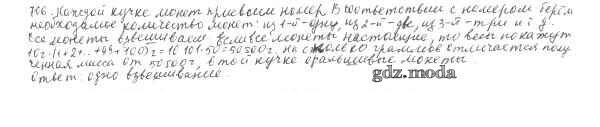 706. Каждой кучке монет присвоим номер. В соответствии с номером берём
необходимое количество монет: из 1-й-одну, из 2-й-две, из 3-й-три и т д.
Все монеты взвешиваем если все монеты настоящие, то весы покажут
10г·(1+2+...+99+100)г=10·101·50=50500г. На сколько граммов отличается полу
ченная масса от 50500г, в той кучке фальшивые монеты.
Ответ: одно взвешивание.
gdz.moda